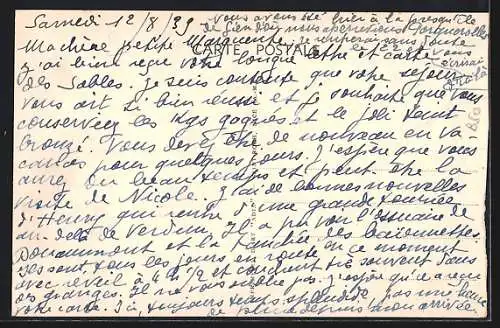 Samedi 12/8/39
Vous avons été hier à la presqu'île
de Giens d'où nous apercevions Porquerolles
CARTE POSTALE
Ma chère petite Marguerite,
j'ai bien reçu votre longue lettre et carte
des Sables. Je suis contente que votre séjour
vous ait si bien réussi et je souhaite que vous
conserviez les kgs gagnés et le joli teint
bronzé. Vous devez être de nouveau en va
cances pour quelques jours. J'espère que vous
aurez du beau temps et peut-être la
visite de Nicole. J'ai de bonnes nouvelles
d'Henry qui rentre d'une grande tournée
au delà de Verdun. Il a pu voir l'Ossuaire de
Douaumont et la tranchée des baïonnettes.
Ils sont tous les jours en route en ce moment
avec réveil à 4h1/2 et couchent très souvent dans
des granges. Il ne vous oublie pas. J'espère qu'il a reçu
votre carte. Ici toujours temps splendide, pas une larme
de pluie depuis mon arrivée.